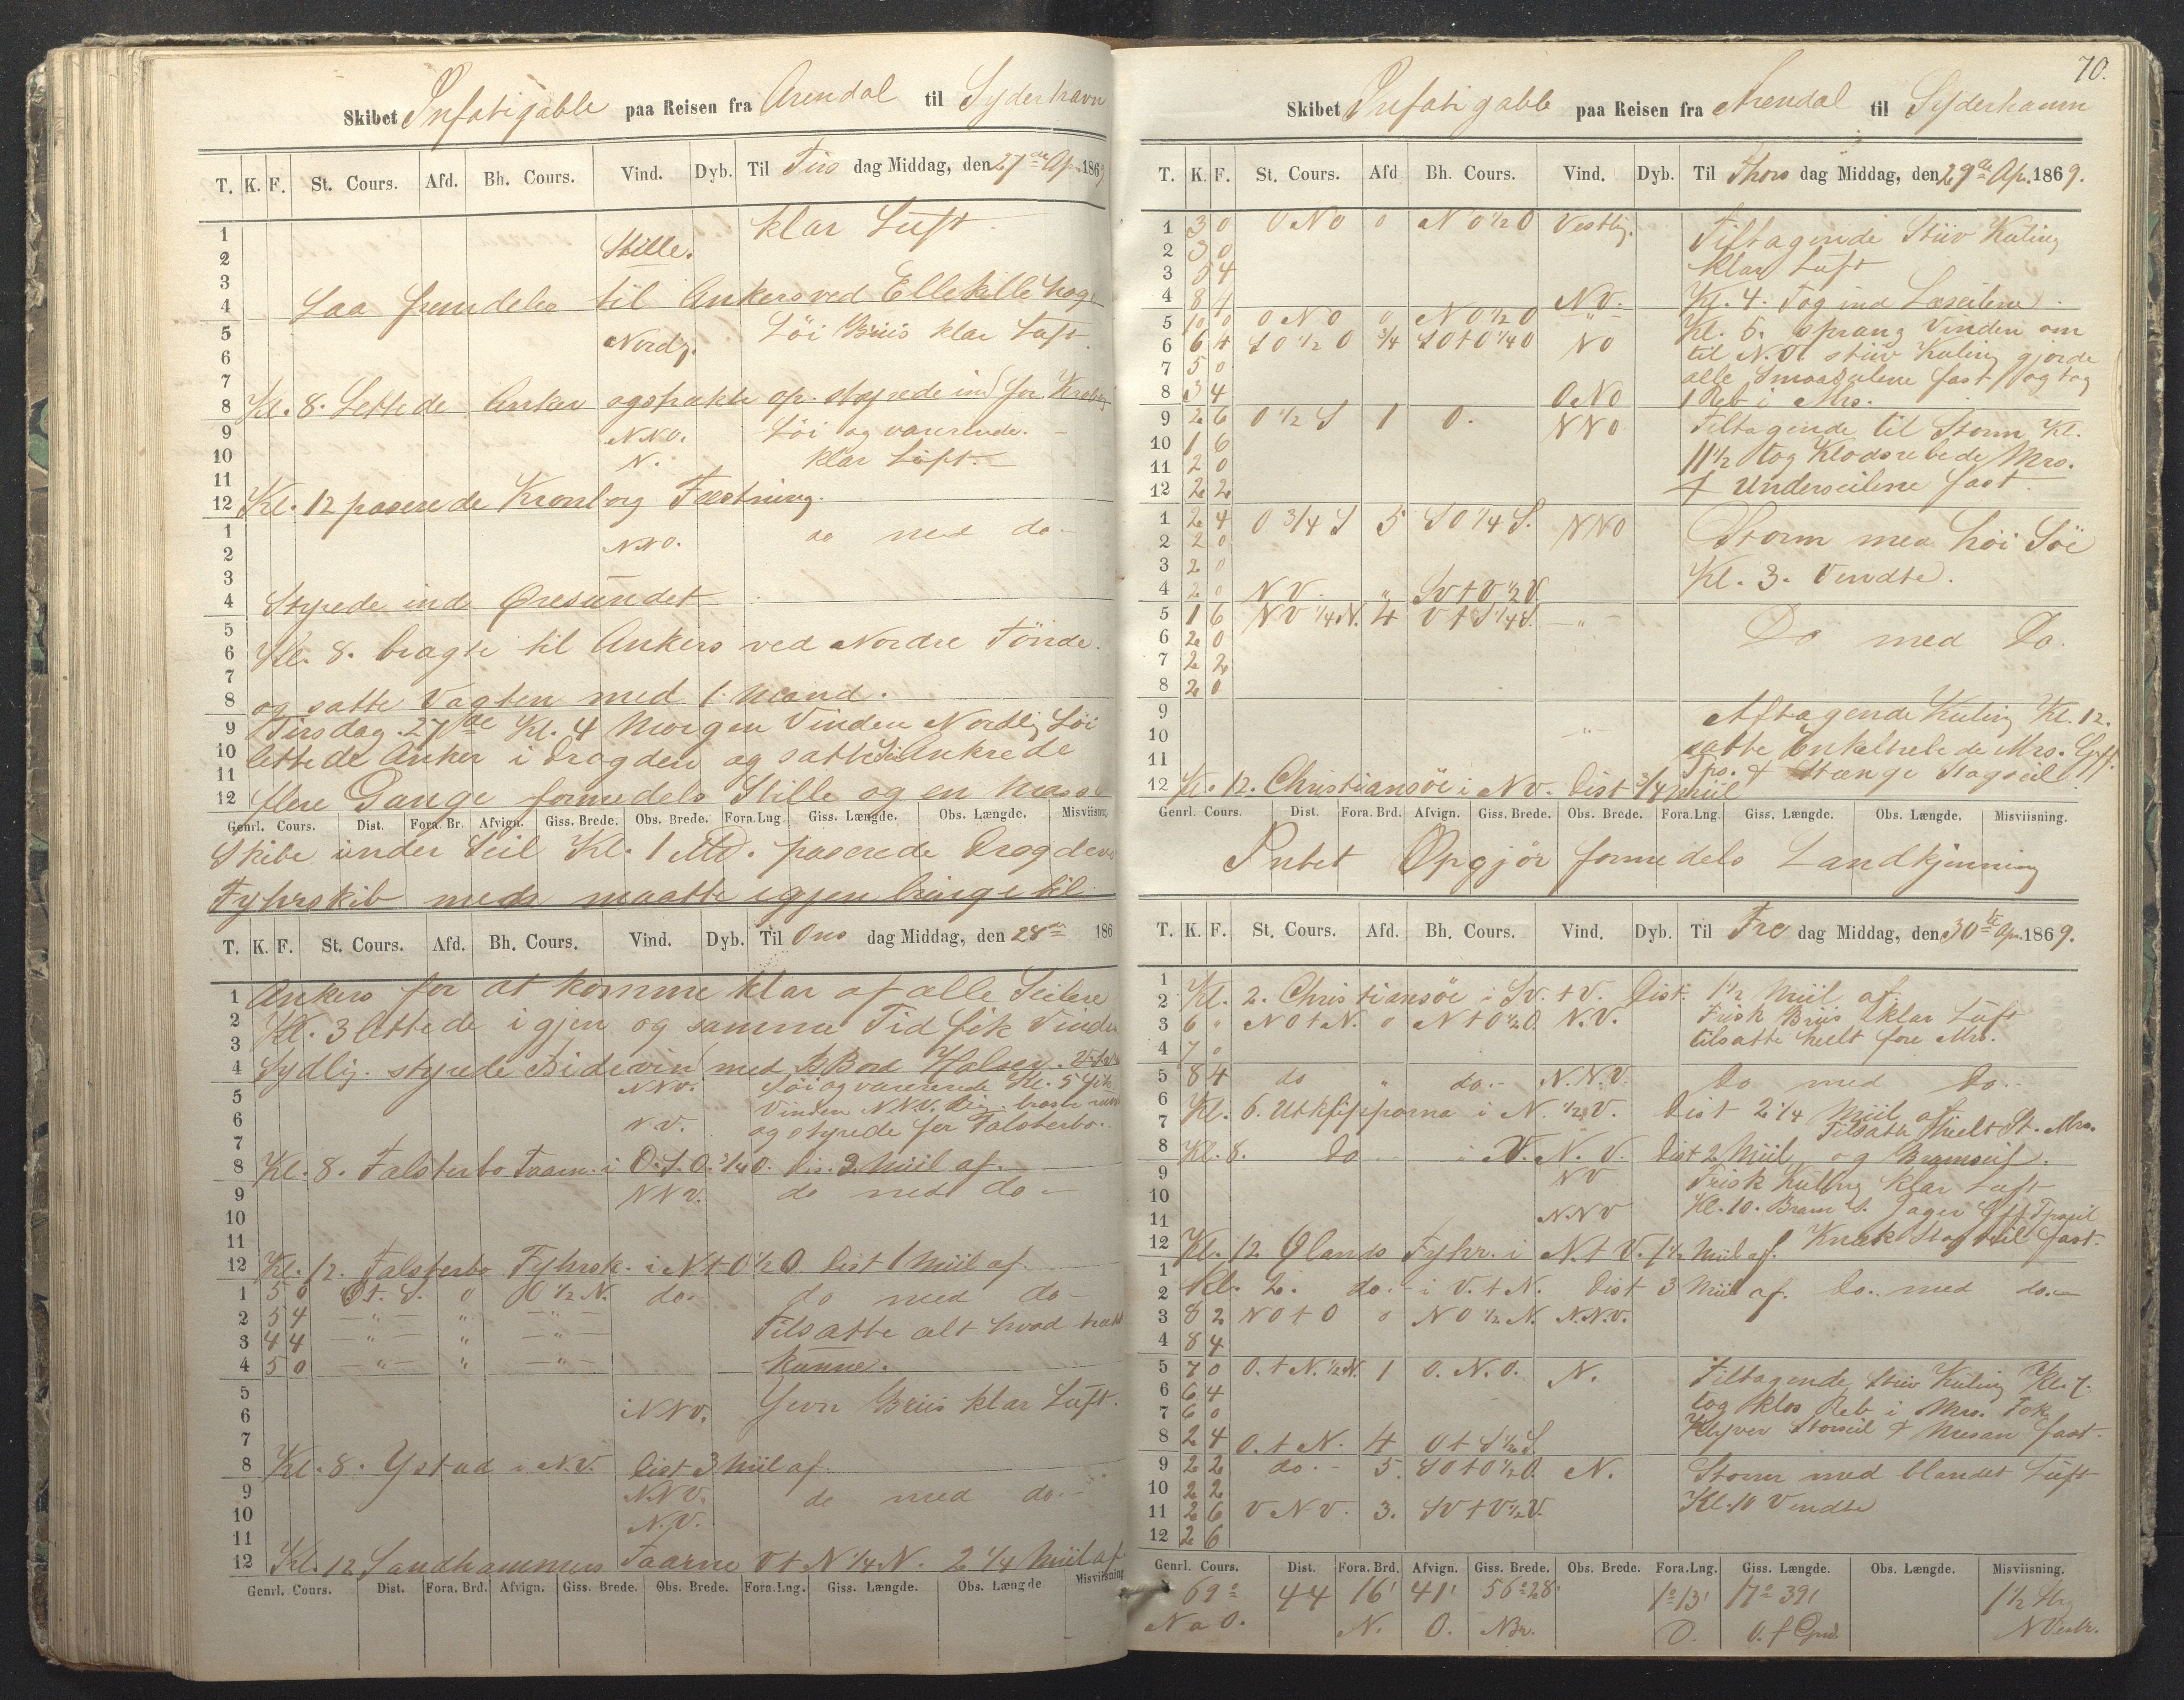 Skibet Infatigable paa Reisen fra Arendal til Syderhavn
T. K. F. St. Cours. Afd. Bh. Cours. Vind. Dyb. Til Tirs dag Middag, den 27de Ap. 1869
1 klar Luft
2 Stille.
3
4 Laa fremdeles til Ankers ved Ellekille hage
5 Nordlig. Löi Briis klar Luft.
6
7
8 Kl. 8. Lettede Anker og styrede ind for
9 N.N.O. Löi og varierende.
10 N. klar Luft.
11
12 Kl. 12 paserede Kronborg Fæstning.
1 N.N.O. do med do
2
3
4 Styrede ind Øresundet
5
6 Kl. 8. bragte til Ankers ved Nordre Tönde.
7
8 og satte Vagten med 1 Mand.
9 Tirsdag 27de Kl. 4 Morgen Vinden Nordlig Löi
10 lettede Anker i Drogden og satte Seil Ankrede
11
12 flere Gange formedels Stille og en Masse
Genrl. Cours. Dist. Fora. Br. Afvign. Giss. Brede. Obs. Brede. Fora. Lng. Giss. Længde. Obs. Længde. Misviisning.
Skibe under Seil Kl. 1 Md. paserede Drogdens
Fyhrskib men maatte igjen bringe til
T. K. F. St. Cours. Afd. Bh. Cours. Vind. Dyb. Til Ons dag Middag, den 28de 186
1 Ankers for at komme klar af alle Seilere
2 Kl. 3 lettede igjen og samme Tid fik Vinden
3
4 Sydlig. styrede Bidevin med B Bord Halser.
5 NNV. Löi og varierende Kl. 5 fik
Vinden NNV. lig.
6 N.V. og styrede for Falsterbo.
7
8 Kl. 8. Falsterbo Taarn i O.S.O. 3/4 O. Dis. 2. Miil af.
9 NNV. do med do
10
11
12 Kl. 12. Falsterbo Fyhrsk. i N t O 1/2 O Dist 1 Miil af.
1 5 0 O t. S. 0 O 1/2 N. do do med do
2 5 4 " " " Tilsatte alt hvad
3 4 4 " " "
4 5 0 " " " kunne.
5
6 NNV. Jevn Briis klar Luft.
7
8 Kl. 8. Ystad i N.V. Dist 3 Miil af.
9 NNV. do med do
10 N.V.
11
12 Kl. 12 Sandhammers Taarne O t N 1/4 N. 2 1/4 Miil af
Genrl. Cours. Dist. Fora. Brd. Afvign. Giss. Brede. Obs. Brede. Fora. Lng. Giss. Længde. Obs. Længde Misviisning
70.
Skibet Infatigable paa Reisen fra Arendal til Syderhamn
T. K. F. St. Cours. Afd Bh. Cours. Vind. Dyb. Til Thors dag Middag, den 29de Ap. 1869.
1 3 0 O N O 0 N O 1/2 O Vestlig. Tiltagende Stiv Kuling
2 3 0
3 5 4 klar Luft
4 8 4 N V. Kl. 4. Tog ind Læseilene.
5 10 0 O N O 0 N O 1/2 O " Kl. 5. sprang Vinden om
6 6 4 S O 1/2 O 3/4 S O t O 1/4 O N O til N.O. stiv Kuling gjorde
7 5 0 alle Smaaseilene fast og tog
8 3 4 O N O 1 Reb i Mrs.
9 2 6 O 1/2 S 1 O. N N O Tiltagende til Storm Kl.
10 1 6 11 1/2 tog Klodsrebede Mrs.
11 2 0
12 2 2 & Underseilene fast.
1 2 4 O 3/4 S 5 S O 1/4 S. N N O Storm med höi Söe
2 2 0
3 2 0 Kl. 3. Vendte.
4 2 0 N V. " S V t V 1/2 V.
5 1 6 N V 1/4 N. 4 V t S 1/4 S. "
6 2 0 Do med Do.
7 2 2
8 2 0
9 Aftagende Kuling Kl. 12.
10 " satte Enkeltrebede Mrs.
11 & Stænge Stagseil
12 Kl. 12. Christiansöe i N V. Dist 3/4 Miil
Genrl. Cours. Dist. Fora. Brd. Afvign. Giss. Brede. Obs. Brede. Fora. Lng. Giss. Længde. Obs. Længde. Misviisning.
Intet Opgjör formedels Landkjenning
T. K. F. St. Cours. Afd. Bh. Cours. Vind. Dyb. Til Fre dag Middag, den 30te Ap. 1869.
1
2 Kl. 2. Christiansöe i S V. t V. Dist. 1 1/2 Miil af.
3 6 " N O t N. 0 N t O 1/2 O. N.V. Frisk Briis klar Luft
4 7 0 tilsatte heelt fore Mrs.
5 8 4 do " do. N.N.V. Do med Do.
6 Kl. 6. Utklipporna i N. 1/2 V. Dist 2 1/4 Miil af
7 Tilsatte heelt St. Mrs.
8 Kl. 8. Do i V. N. V. Dist 2 Miil og Bramseil.
9 N V Frisk Kuling klar Luft
10 Kl. 10. Bram S. Jager
11 N.N V
12 Kl. 12 Ølands Fyhr. i N. t V. 1 1/2 Miil af. Stagseil fast.
1
2 Kl. 2. do. i V. t N. Dist 3 Miil af. Do. med do.
3 8 2 N O t O 0 N O 1/2 N. N.N.V.
4 8 4
5 7 0 O. t N. 1/2 N. 1 O. N. O. N. Tiltagende Stiv Kuling Kl. 7.
6 6 4
7 6 0 tog klos Reb i Mrs. Fok
8 2 4 O. t N. 4 O t S 1/2 S. Klyver Storseil & Mesan fast.
9 2 2 do. 5. S O t O 1/2 O. N. Storm med blandet Luft
10 2 2
11 2 6 V N V. 3. S V t V 1/2 V. Kl. 10 Vendte
12 2 6
Genrl. Cours. Dist. Fora. Brd. Afvign. Giss. Brede. Obs. Brede. Fora. Lng. Giss. Længde. Obs. Længde. Misviisning.
69° 44 16' 41' 56°28' 1°13' 17°39' 1 1/2 Str
N a O. N. O. Nbr. O. O. f Grw.